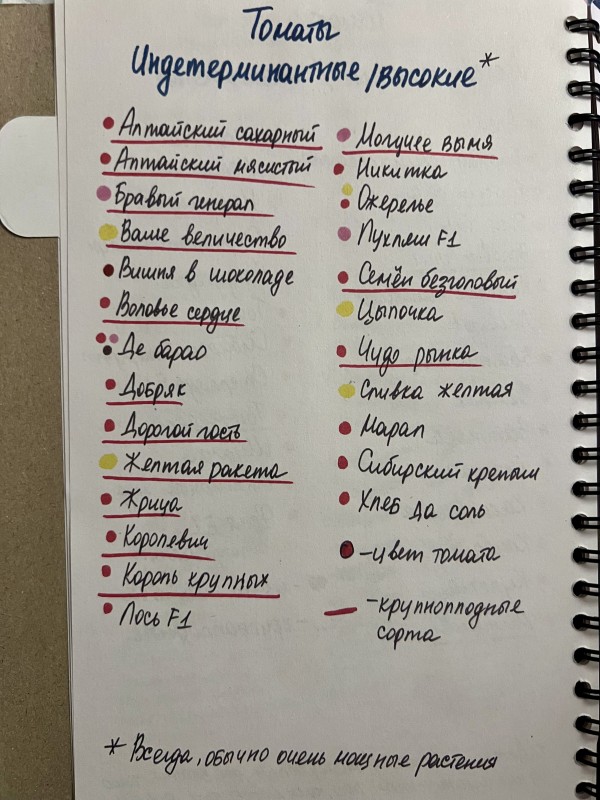 Томаты
Индетерминантные /высокие*
Алтайский сахарный
Алтайский мясистый
Бравый генерал
Ваше величество
Вишня в шоколаде
Воловье сердце
Де барао
Добряк
Дорогой гость
Желтая ракета
Жрица
Королевич
Король крупных
Лось F1
Могучее вымя
Никитка
Ожерелье
Пухляш F1
Семён безголовый
Цыпочка
Чудо рынка
Сливка желтая
Марал
Сибирский крепыш
Хлеб да соль
-цвет томата
-крупноплодные
сорта
* Всегда, обычно очень мощные растения